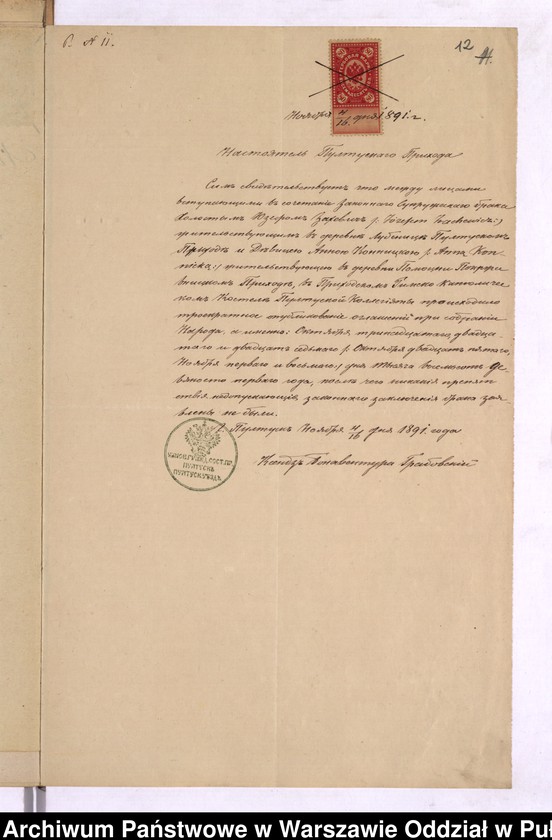 В № 11.
12
Ноября 4/16 дня 1891 г.
Настоятель Пултускаго Прихода
Симъ свидѣтельствуетъ что между лицами
вступающими въ сочетаніе законнаго Супружескаго брака
Холостымъ Юзефомъ
жительствующимъ въ деревнѣ Пултускомъ
Приходѣ и Дѣвицею Анною Копницкою / Anna Kop-
nicka / жительствующею въ деревни
Приходѣ, въ Приходскомъ Римско Католичес-
комъ Костелѣ Пултуской Коллегіяты происходило
троекратное опубликованіе оглашеній при собраніи
Народа, а именно: Октября тринадцатаго, двадца-
таго и двадцать седьмаго /: Октября двадцать пятаго,
Ноября перваго и восьмаго :/ дня тысяча восемьсотъ де-
вяносто перваго года, послѣ чего никакія препят-
ствія недопускающія законнаго заключенія брака зая-
влены не были.
г. Пултускъ Ноября 4/16 дня 1891 года
Ксендзъ Бонавентура Грабовскій
ПУЛТУСКЪ
Archiwum Państwowe w Warszawie Oddział w Puł